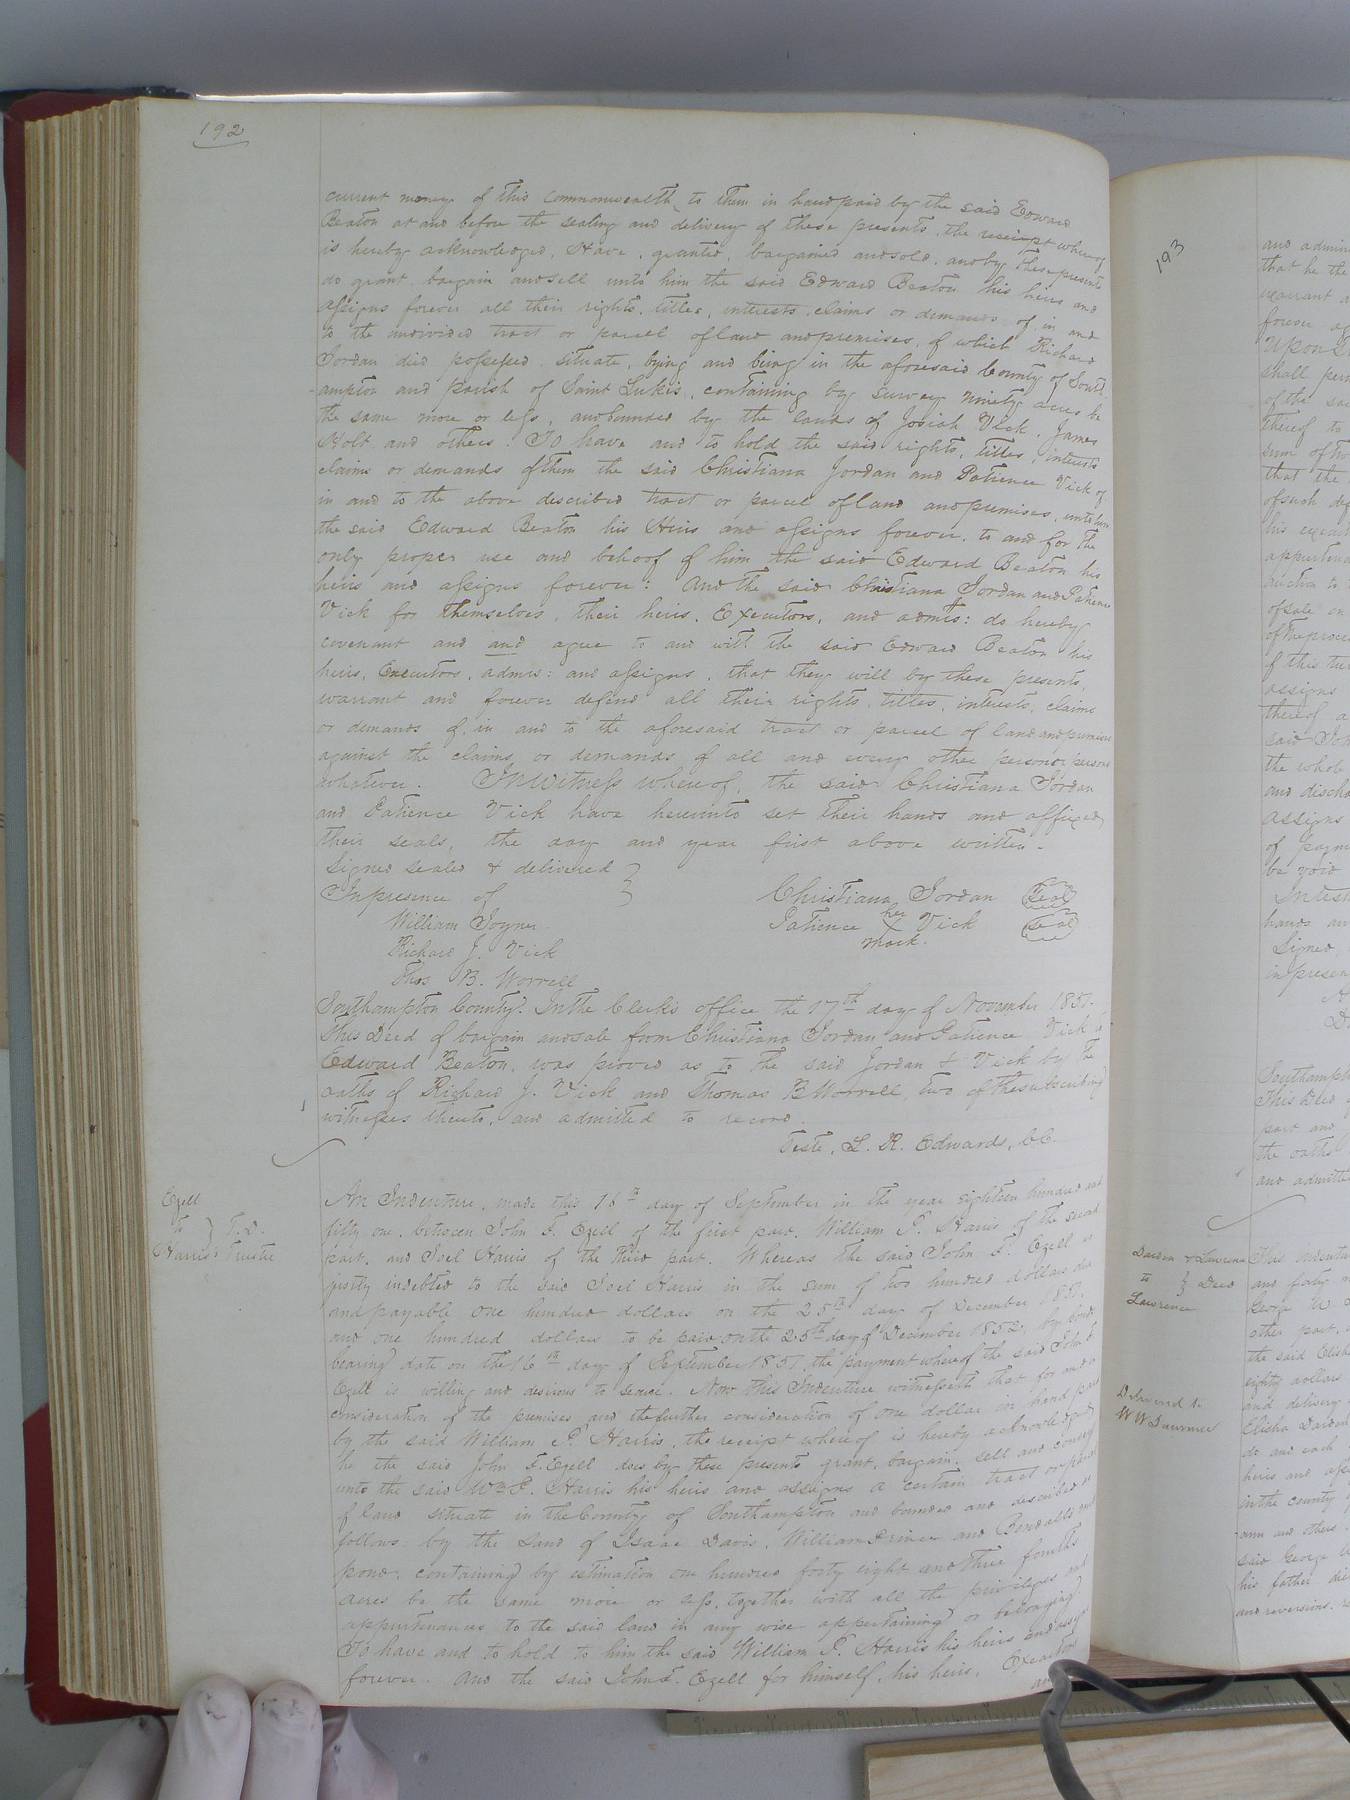 192
current money of this Commonwealth, to them in hand paid by the said Edward
Beaton at and before the sealing and delivery of these presents, the receipt whereof
is hereby acknowledged, Have, granted, bargained and sold, and by these presents
do grant, bargain and sell unto him the said Edward Beaton his heirs and
assigns forever all their rights, titles, interests, claims or demands of, in and
to the undivided tract or parcel of land and premises, of which Richard
Jordan died possessed, situate, lying and being in the aforesaid County of South
-ampton and parish of Saint Luke's, containing by survey ninety acres be
the same more or less, and bounded by the lands of Josiah Vick, James
Holt and others. To have and to hold the said rights, titles, interests
claims or demands of them the said Christiana Jordan and Patience Vick of
in and to the above described tract or parcel of land and premises, unto him
the said Edward Beaton his Heirs and assigns forever, to and for the
only proper use and behoof of him the said Edward Beaton his
heirs and assigns forever: And the said Christiana Jordan and Patience
Vick for themselves, their heirs, Executors, and admrs: do hereby
covenant and and agree to and with the said Edward Beaton his
heirs, Executors, admrs: and assigns, that they will by these presents,
warrant and forever defend all their rights, titles, interests, claims
or demands of, in and to the aforesaid tract or parcel of land and premises
against the claims or demands of all and every other person or persons
whatever. In Witness whereof, the said Christiana Jordan
and Patience Vick have hereunto set their hands and affixed
their seals, the day and year first above written.
Signed sealed & delivered }
In presence of Christiana Jordan Seal
William Joyner Patience her Vick Seal
mark.
Richard J. Vick
Thos B. Worrell
Southampton County. In the Clerk's office the 17th day of November 1851.
This Deed of bargain and sale from Christiana Jordan and Patience Vick to
Edward Beaton, was proved as to the said Jordan & Vick by the
oaths of Richard J. Vick and Thomas B Worrell two of the subscribing
witnesses thereto, and admitted to record.
Teste, L. R. Edwards, CC.
Ezell
To } T.D.
Harris's Trustee
An Indenture, made this 16th day of September in the year eighteen hundred and
fifty one, between John F. Ezell of the first part, William P. Harris of the second
part, and Joel Harris of the third part. Whereas the said John F. Ezell is
justly indebted to the said Joel Harris in the sum of two hundred dollars due
and payable one hundred dollars on the 25th day of December 1851.
and one hundred dollars to be paid on the 25th day of December 1852. by bond
bearing date on the 16th day of September 1851, the payment whereof the said John F.
Ezell is willing and desirous to secure. Now this Indenture witnesseth that for and in
consideration of the premises and the further consideration of one dollar in hand paid
by the said William P. Harris, the receipt whereof is hereby acknowledged
he the said John F. Ezell does by these presents grant, bargain, sell and convey
unto the said Wm P. Harris his heirs and assigns a certain tract or parcel
of land situate in the County of Southampton and bounded and described as
follows: by the land of Isaac Davis, William Prince and Bendalls mill
pond, containing by estimation one hundred forty eight and three fourths
acres be the same more or less, together with all the privileges and
appurtenances to the said land in any wise appertaining or belonging
To have and to hold to him the said William P. Harris his heirs and assigns
forever. And the said John F. Ezell for himself, his heirs, Executors
and
193
and admin
that he the
warrant a
forever ag
Upon
shall per
of the sai
thereof to
sum of two
that the
of such def
his execut
appurtena
auction to
of sale on
of the procee
of this
assigns
thereof a
said John
the whole
and discha
assigns
of paym
be void
In testi
hands an
Signed,
in presen
Southampt
This Deed
part and
the oaths
and admitte
Darden & Lawrence
to } Deed
Lawrence
This Indentu
and forty
George W.
other part,
the said Elish
eighty dollars
and delivery
Elisha Darden
do and each
heirs and ass
in the county
-ann and others
said George W
his father die
and reversions,
Delivered to
W W Lawrence